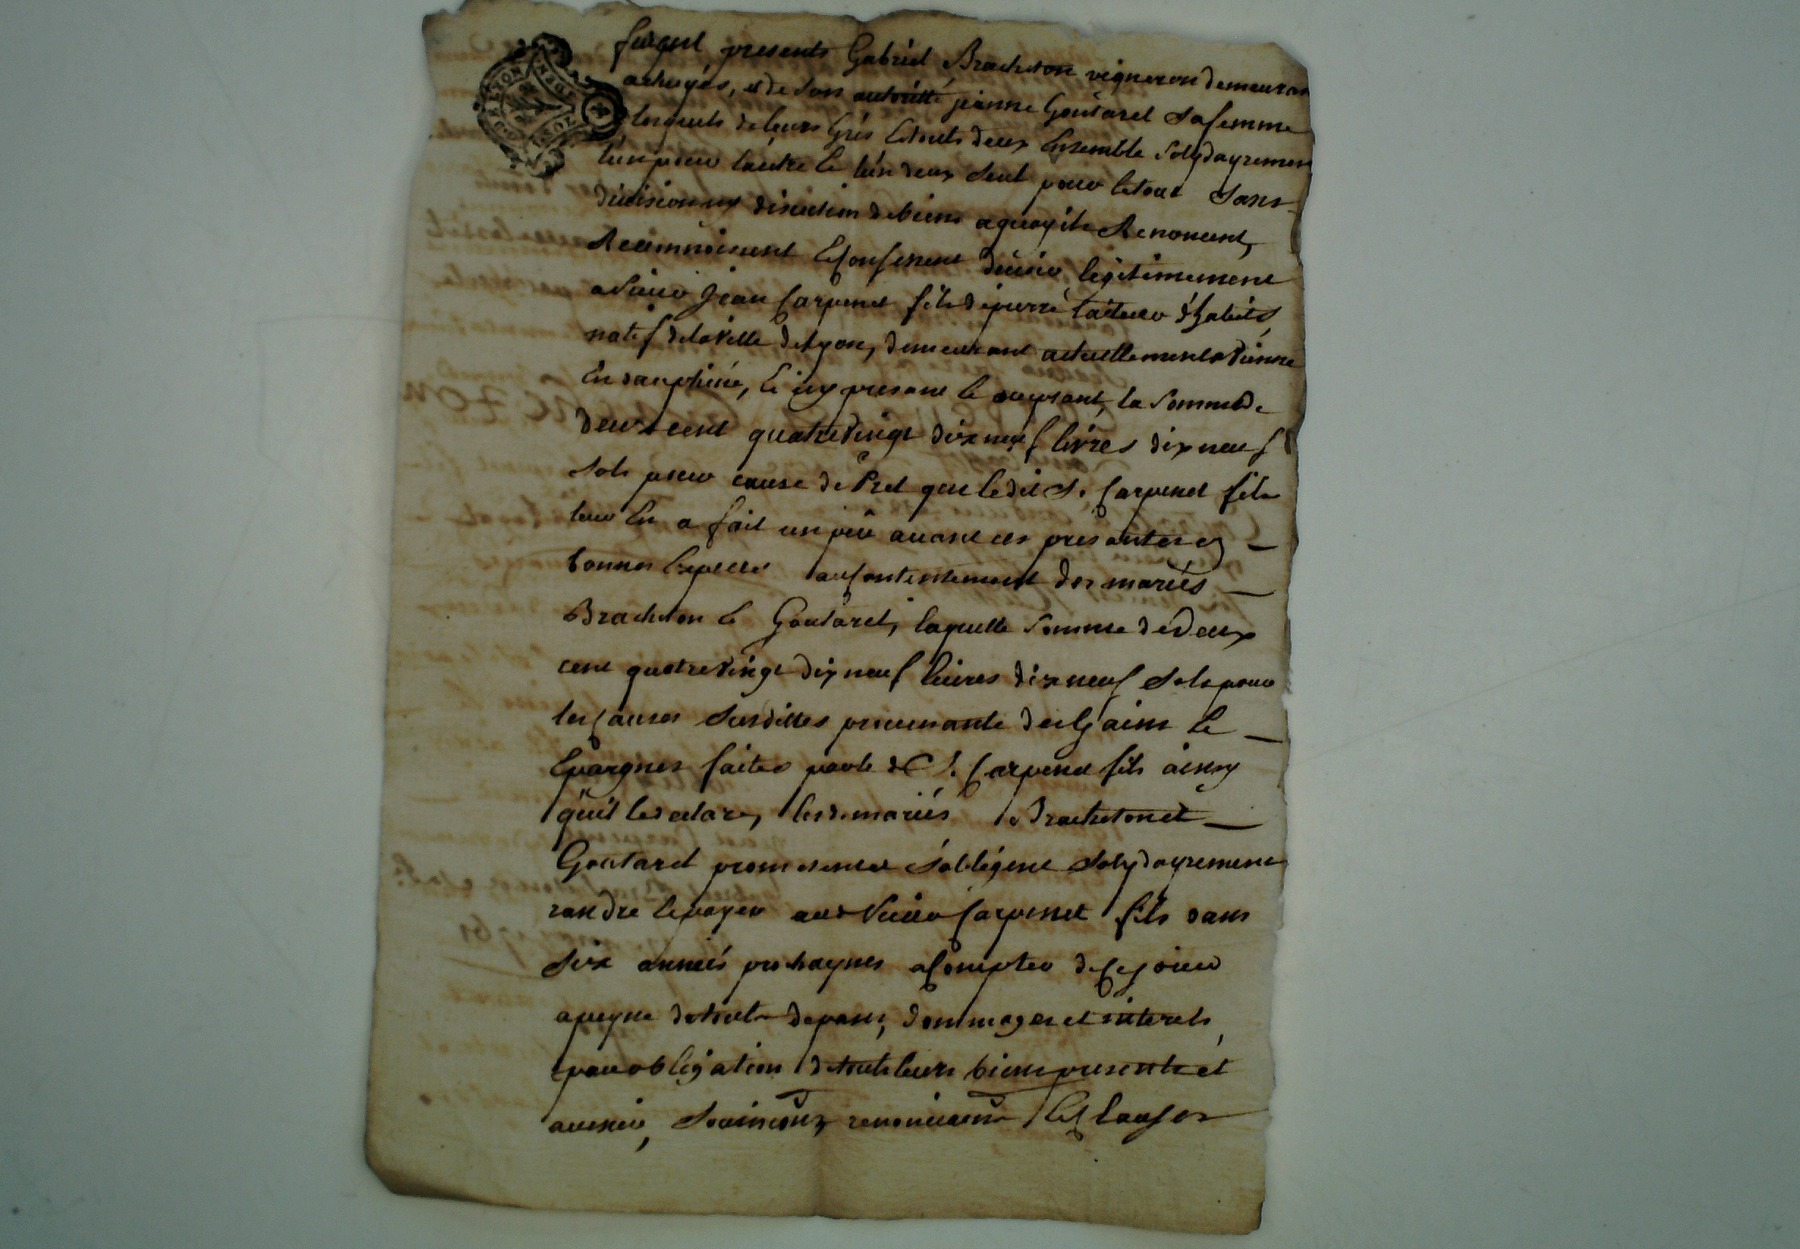 furent presents Gabriel Bracheton vigneron demeurant
a chuyés, et de son autoritté jeanne Goutaret sa femme
lesquels de leurs grés et touts deux ensemble solydayrement
l'un pour l'autre et l'un deux seul pour le tout sans
division ny discution de biens a quoy ils Renoncent,
Reconnoissent et confessent devoir legitimement
a sieur Jean Carpenet fils de pierre tailleur d'habits,
natif de la ville de Lyon, demeurant actuellement a Vienne
en dauphiné, et icy present et acceptant, la somme de
deux cent quatre vingt dix neuf livres dix neuf
sols pour cause de Pret que le dit Sr. Carpenet fils
leur en a fait un peu avant ces presantes en
bonnes especes au contentement des mariés
Bracheton et Goutaret, laquelle somme de Deux
cent quatre vingt dix neuf livres dix neuf sols pour
les causes susdittes provenante des Gains et
Epargnes faites par le dt Sr. Carpenet fils ainsy
qu'il le declare, lesds mariés Bracheton et
Goutaret promettent et s'obligent solydayrement
randre et payer audt sieur Carpenet fils dans
six années prochaynes a compter de ce jour
a peyne de touts depans, dommages et interets
par obligation de touts leurs biens presents et
avenir, soumissions renonciations et clauses